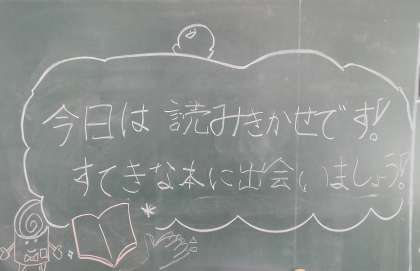 今日は 読みきかせです!
すてきな本に出会いましょう!